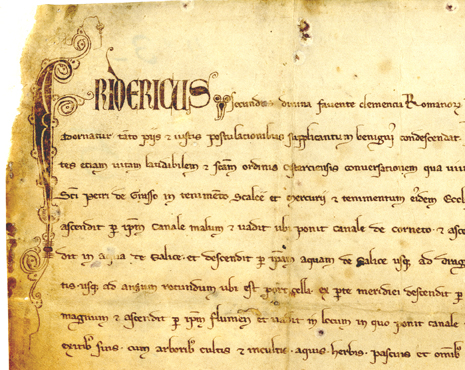 FRIDERICUS secundus divina favente clementia Romanor
adornatur tato pijs et iustis postulationibus supplicantium benignu condescendit
tes etiam vitam laudibilem et scam ordinis cistarciensis conversationem qua
Sci Petri de in tenimeto Scalce et mercurij et tenimentum eidem Eccl
ascendit p ipm canale malum et vadit ubi ponit canale de corneto et asce
dit in aqua de salice et descendit p ipam aquam de salice usq ad drag
tis usq ad angum rotundum ubi est ex pte meridiei descendit p
magnum et ascendit p ipm flumen et vadit in locum in quo ponit canale
exitib suis cum arborib cultis et incultis aquis herbis pascuis et omib